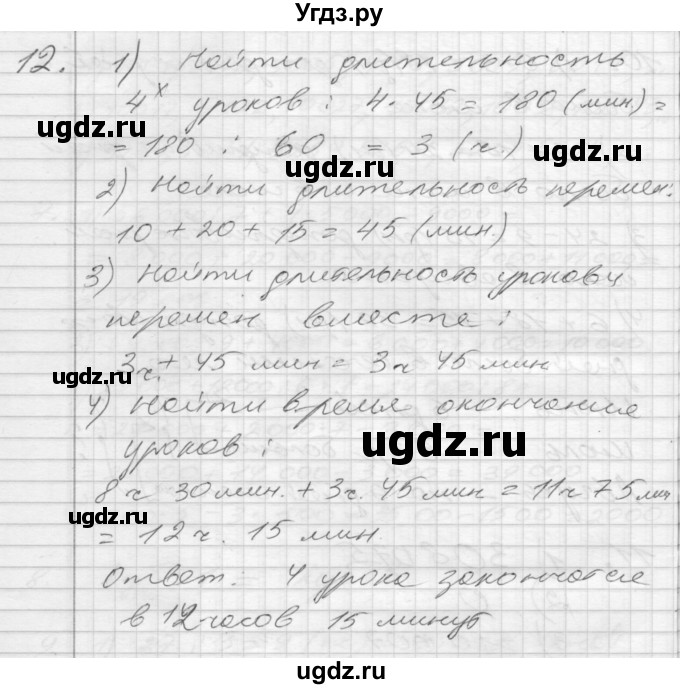 Угдз.ру
12. 1) Найти длительность
4х уроков : 4 · 45 = 180 (мин.) =
ugdz.ru
= 180 : 60 = 3 (ч.)
ugdz.ru
ugdz.ru
2) Найти длительность перемен:
10 + 20 + 15 = 45 (мин.)
ugdz.ru
3) Найти длительность уроков и
перемен вместе :
3ч. + 45 мин = 3ч 45 мин
ugdz.ru
4) Найти время окончания
уроков :
ugdz.ru
8 ч 30 мин. + 3ч. 45 мин = 11ч 75 мин
ugdz.ru
= 12 ч. 15 мин.
Ответ: 4 урока закончатся
в 12 часов 15 минут
ugdz.ru
ugdz.ru